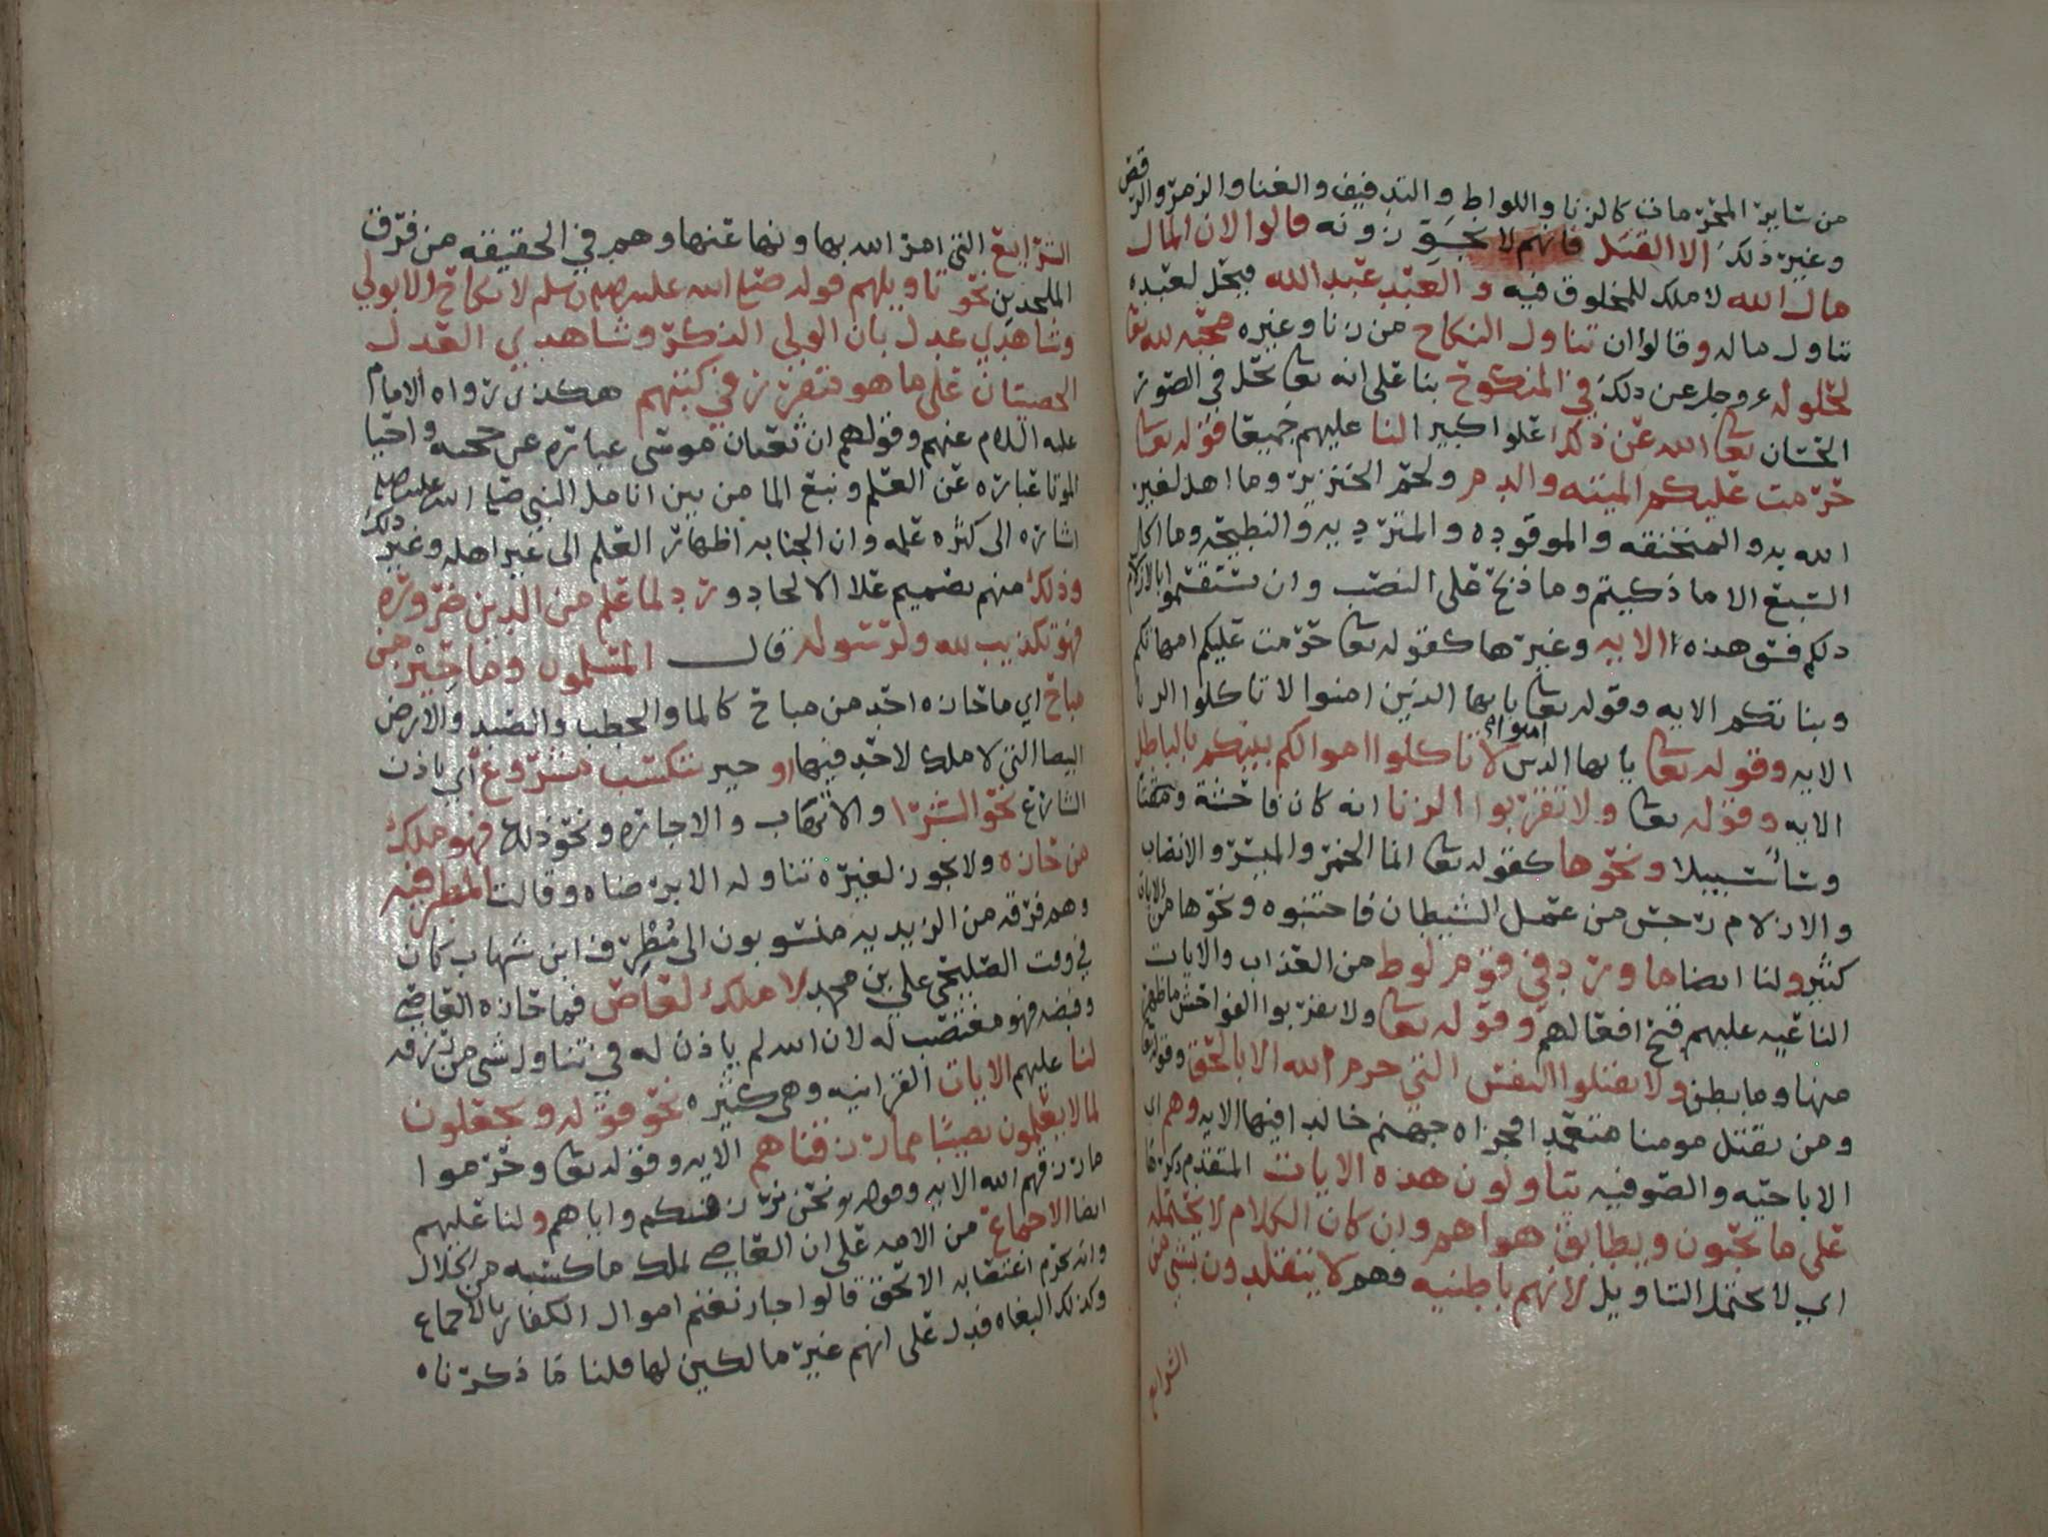 من سایر المحرمات كالزنا واللواط والتدفيف والغنا والزمر والرقص
وغير ذلك الا القتل فانهم لا يجوزونه قالوا لان المال
مال الله لا ملك للمخلوق فيه والعبد عبد الله فيحل لعبده
تناول ماله وقالوا ان تناول النكاح من زنا وغيره محبه لله تعا
لحلوله عز وجل عن ذلك في المنكوح بنا على انه تعا يحل في الصور
الحسان تعا الله عن ذلك علوا كبيرا لنا عليهم جميعا قوله تعا
حرمت عليكم الميته والدم ولحم الخنزير وما اهل لغير
الله به والمنخنقه والموقوده والمتردیه والنطيحه وما اكل
السبع الا ما ذكيتم وما ذبح على النصب وان تستقسموا بالازلام
ذلكم فسق هذه الايه وغيرها كقوله تعا حرمت عليكم امهاتكم
وبناتكم الايه وقوله تعا يا ايها الذين امنوا لا تاكلوا الربا
الايه وقوله تعا يا ايها الذين امنوا لا تاكلوا اموالكم بينكم بالباطل
الايه وقوله تعا ولا تقربوا الزنا انه كان فاحشة ومقتا
وسا سبيلا ونحوها كقوله تعا انما الخمر والميسر والانصاب
والازلام رجس من عمل الشيطان فاجتنبوه ونحوها من الايات
كثير ولنا ايضا ما ورد في قوم لوط من العذاب والايات
الناعيه عليهم قبح افعالهم وقوله تعا ولا تقربوا الفواحش ما ظهر
منها وما بطن ولا تقتلوا النفس التي حرم الله الا بالحق وقوله تعا
ومن يقتل مومنا متعمدا فجزاه جهنم خالدا فيها الايه وهم اي
الاباحيه والصوفيه يتاولون هذه الايات المتقدم ذكرها
على ما يحبون ويطابق هواهم وان كان الكلام لا يحتمله
اي لا يحتمل التاويل لانهم باطنيه فهم لا يتقلدون بشي من
الشرايع
الشرايع التي امر الله بها ونها عنها وهم في الحقيقه من فرق
الملحدين نحو تاويلهم قوله صلى الله عليه وسلم لا نكاح الا بولي
وشاهدي عدل بان الولي الذكر وشاهدي العدل
الخصيتان على ما هو متقرر في كتبهم هكذى رواه الامام
عليه السلام عنهم وقولهم ان ثعبان موسى عباره عن حجته واحيا
الموتا عباره عن العلم ونبع الما من بين انامل النبي صلى الله عليه
اشاره الى كثره علمه وان الجنابه اظهار العلم الى غير اهله وغير ذلك
وذلك منهم تصميم علا الالحاد ورد لما علم من الدين ضروره
فهو تكذيب لله ولرسوله قال المسلمون وما حيز من
مباح اي ما حازه احد من مباح كالما والحطب والصيد والارض
البيضا التي لا ملك لاحد فيها او حيز بتكسب مشروع اي باذن
الشارع نحو الشرا والاتهاب والاجاره ونحو ذلك فهو ملك
من حازه ولا يجوز لغيره تناوله الا برضاه وقالت المطرفيه
وهم فرقه من الزيديه منسوبون الى مطرف ابن شهاب كان
في وقت الصليحي علي بن محمد لا ملك لعاص فما حازه العاصي
وقبضه فهو مغتصب له لان الله لم ياذن له في تناول شي من رزقه
لنا عليهم الايات القرانيه وهي كثيره نحو قوله ويجعلون
لما لا يعلمون نصيبا مما رزقناهم الايه وقوله تعا وحرموا
ما رزقهم الله الايه وقوله نحن نرزقكم واياهم ولنا عليهم
ايضا الاجماع من الامه على ان العاصي يملك ما كسبه من الحلال
وانه يحرم اغتصابه الا بحق قالوا جاز نغنم اموال الكفار بالاجماع
وكذلك البغاه فدل على انهم غير مالكين لها قلنا ما ذكرناه